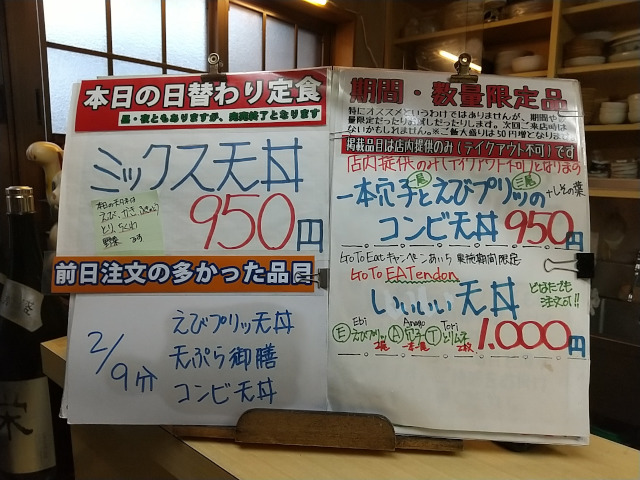 本日の日替わり定食
昼・夜ともありますが、売切終了となります
ミックス天丼
本日のネタは
とり、ちくわ
野菜 です
950円
前日注文の多かった品目
2/9分
えびプリッ天丼
天ぷら御膳
コンビ天丼
期間・数量限定品
特にオススメというわけではありませんが、期間や
量限定だったりお試しだったりします。次回ご来店時は
ないかもしれません。※ご飯大盛りは50円増となります
掲載品目は店内提供のみ(テイクアウト不可)です
店内提供のみ(テイクアウト不可)となります
一本穴子と二尾えびプリッの三尾
+しその葉
コンビ天丼 950円
Go To Eat キャンペーンあいち 実施期間限定
Go To EATendon
いいいい天丼
どなたでも
注文可!!
Ebi Anago Tori
E えびプリッ A 穴子 T とりムネ
2尾 一本 2枚
1.000円